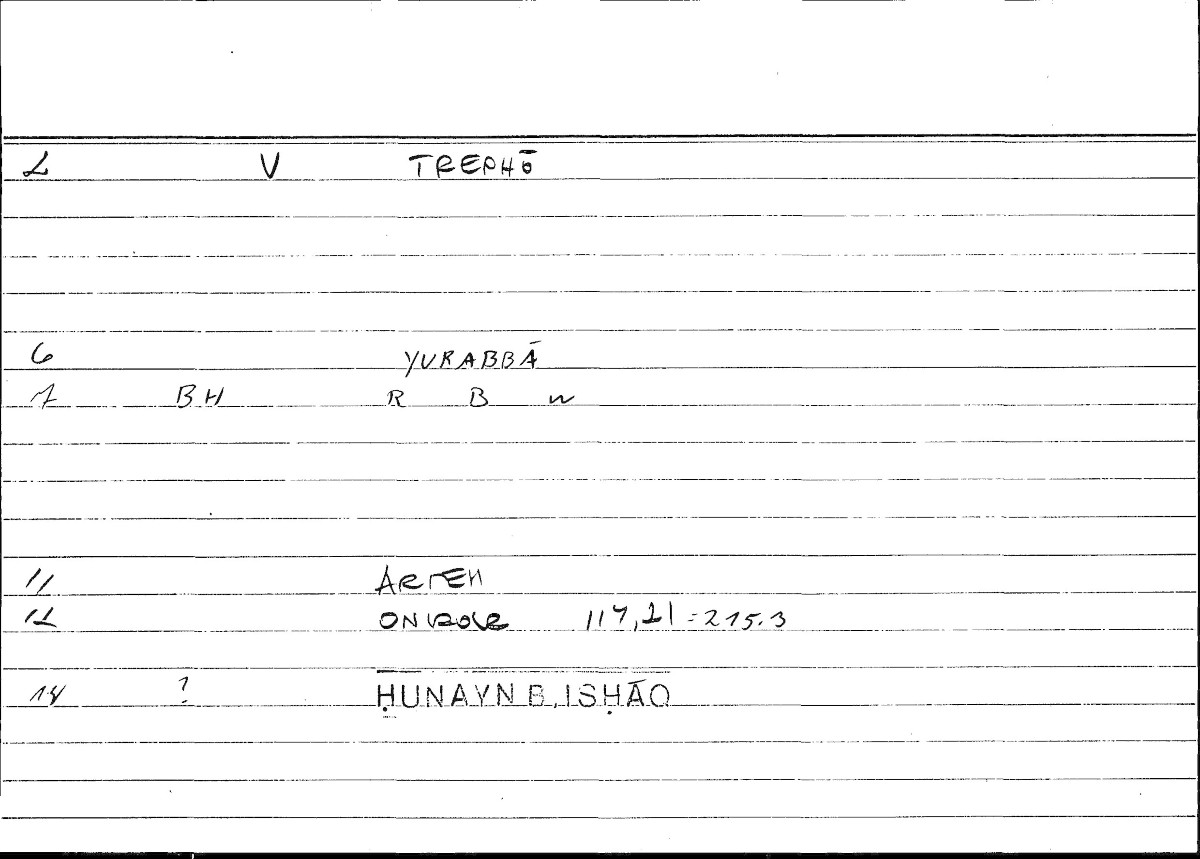 2 V TREPHŌ
6 YURABBĀ
7 BH R B W
11 ARTEM
12 ONIROCR 117,21 = 215.3
14 ? ḤUNAYN B. ISḤĀQ